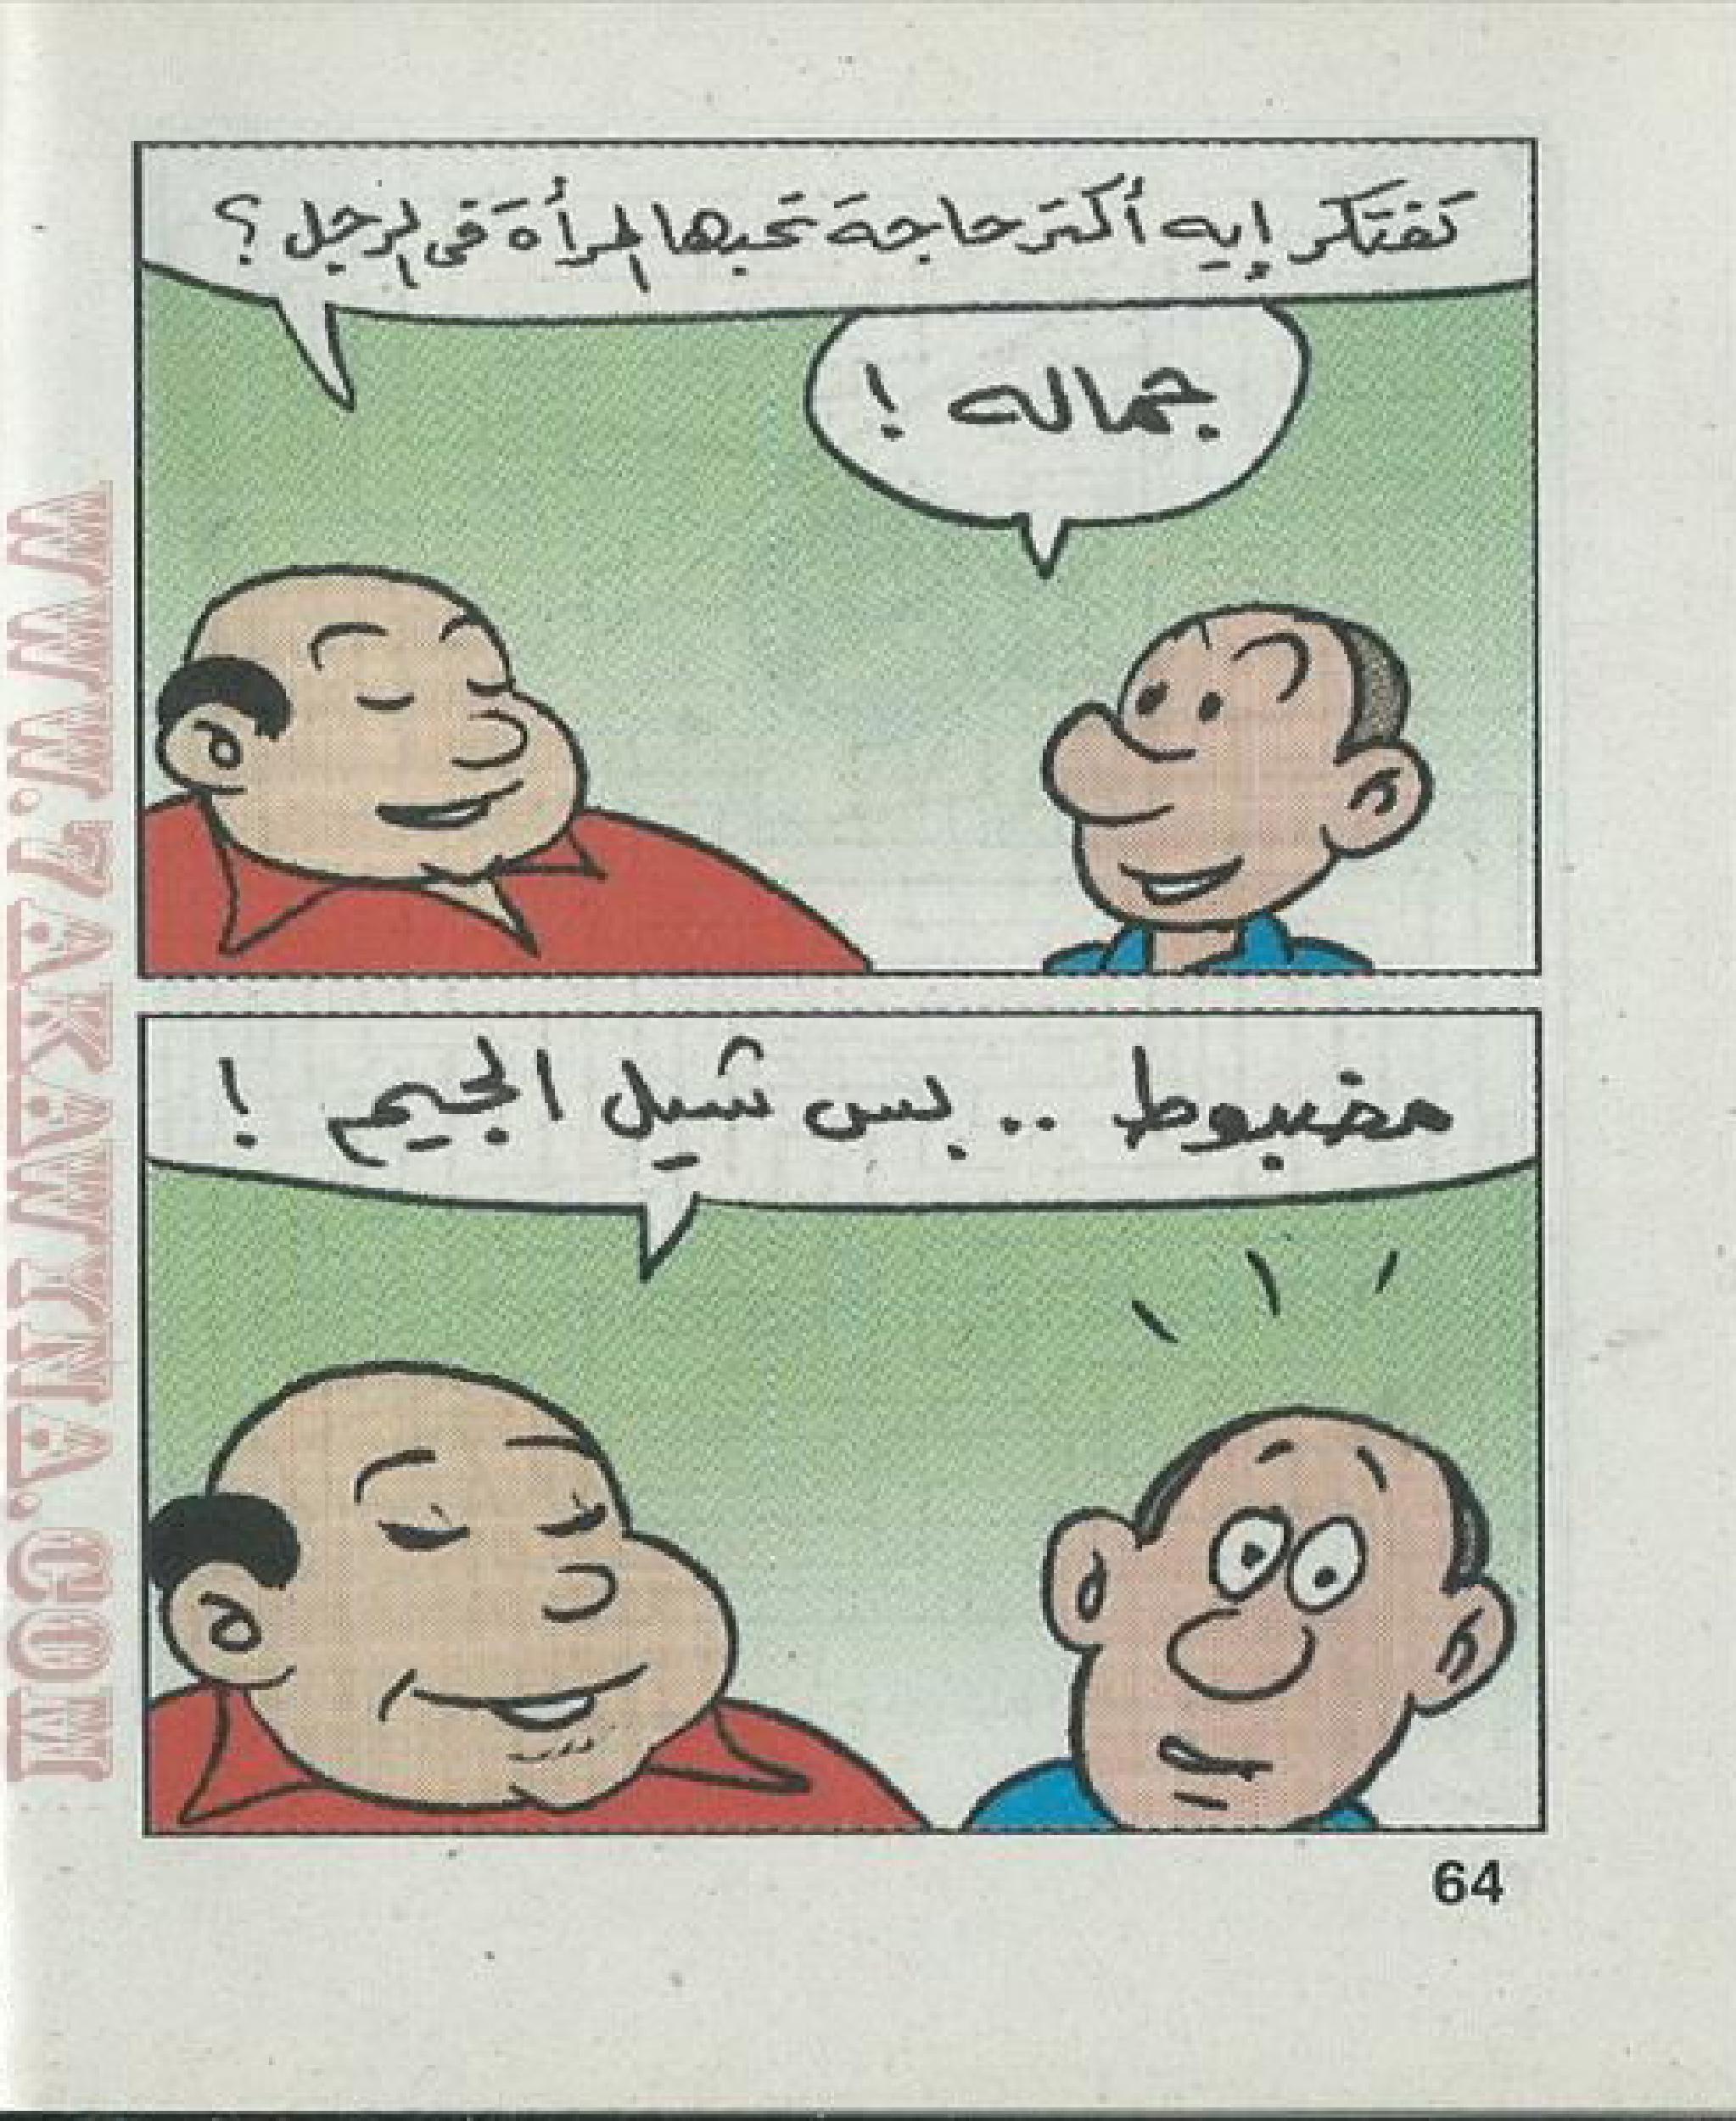 تفتكر إيه أكتر حاجة تحبها المرأة فى الرجل؟
جماله !
مضبوط .. بس شيل الجيم !
64
WWW.ZAKAWKNA.COM